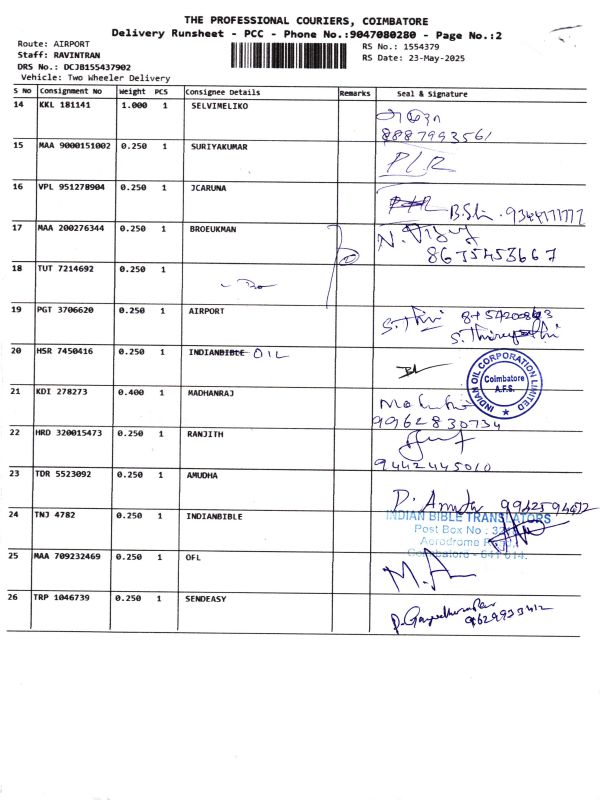 THE PROFESSIONAL COURIERS, COIMBATORE
Delivery Runsheet - PCC - Phone No.:9047080280 - Page No.:2
Route: AIRPORT
RS No.: 1554379
Staff: RAVINTRAN
RS Date: 23-May-2025
DRS No.: DCJB155437902
Vehicle: Two Wheeler Delivery
S No Consignment No Weight PCS Consignee Details Remarks Seal & Signature
14 KKL 181141 1.000 1 SELVIMELIKO
8887993561
15 MAA 9000151002 0.250 1 SURIYAKUMAR
PLR
16 VPL 951278904 0.250 1 JCARUNA
17 MAA 200276344 0.250 1 BROEUKMAN
N. Vijay
8675453667
18 TUT 7214692 0.250 1
19 PGT 3706620 0.250 1 AIRPORT
20 HSR 7450416 0.250 1 INDIANBIBLE OIL
INDIAN OIL CORPORATION LIMITED
Coimbatore
A.F.S.
21 KDI 278273 0.400 1 MADHANRAJ
9962830734
22 HRD 320015473 0.250 1 RANJITH
9442445010
23 TDR 5523092 0.250 1 AMUDHA
24 TNJ 4782 0.250 1 INDIANBIBLE
INDIAN BIBLE TRANSLATORS
Post Box No :
Aerodrome
Coimbatore - 641 014.
25 MAA 709232469 0.250 1 OFL
26 TRP 1046739 0.250 1 SENDEASY
9629933412